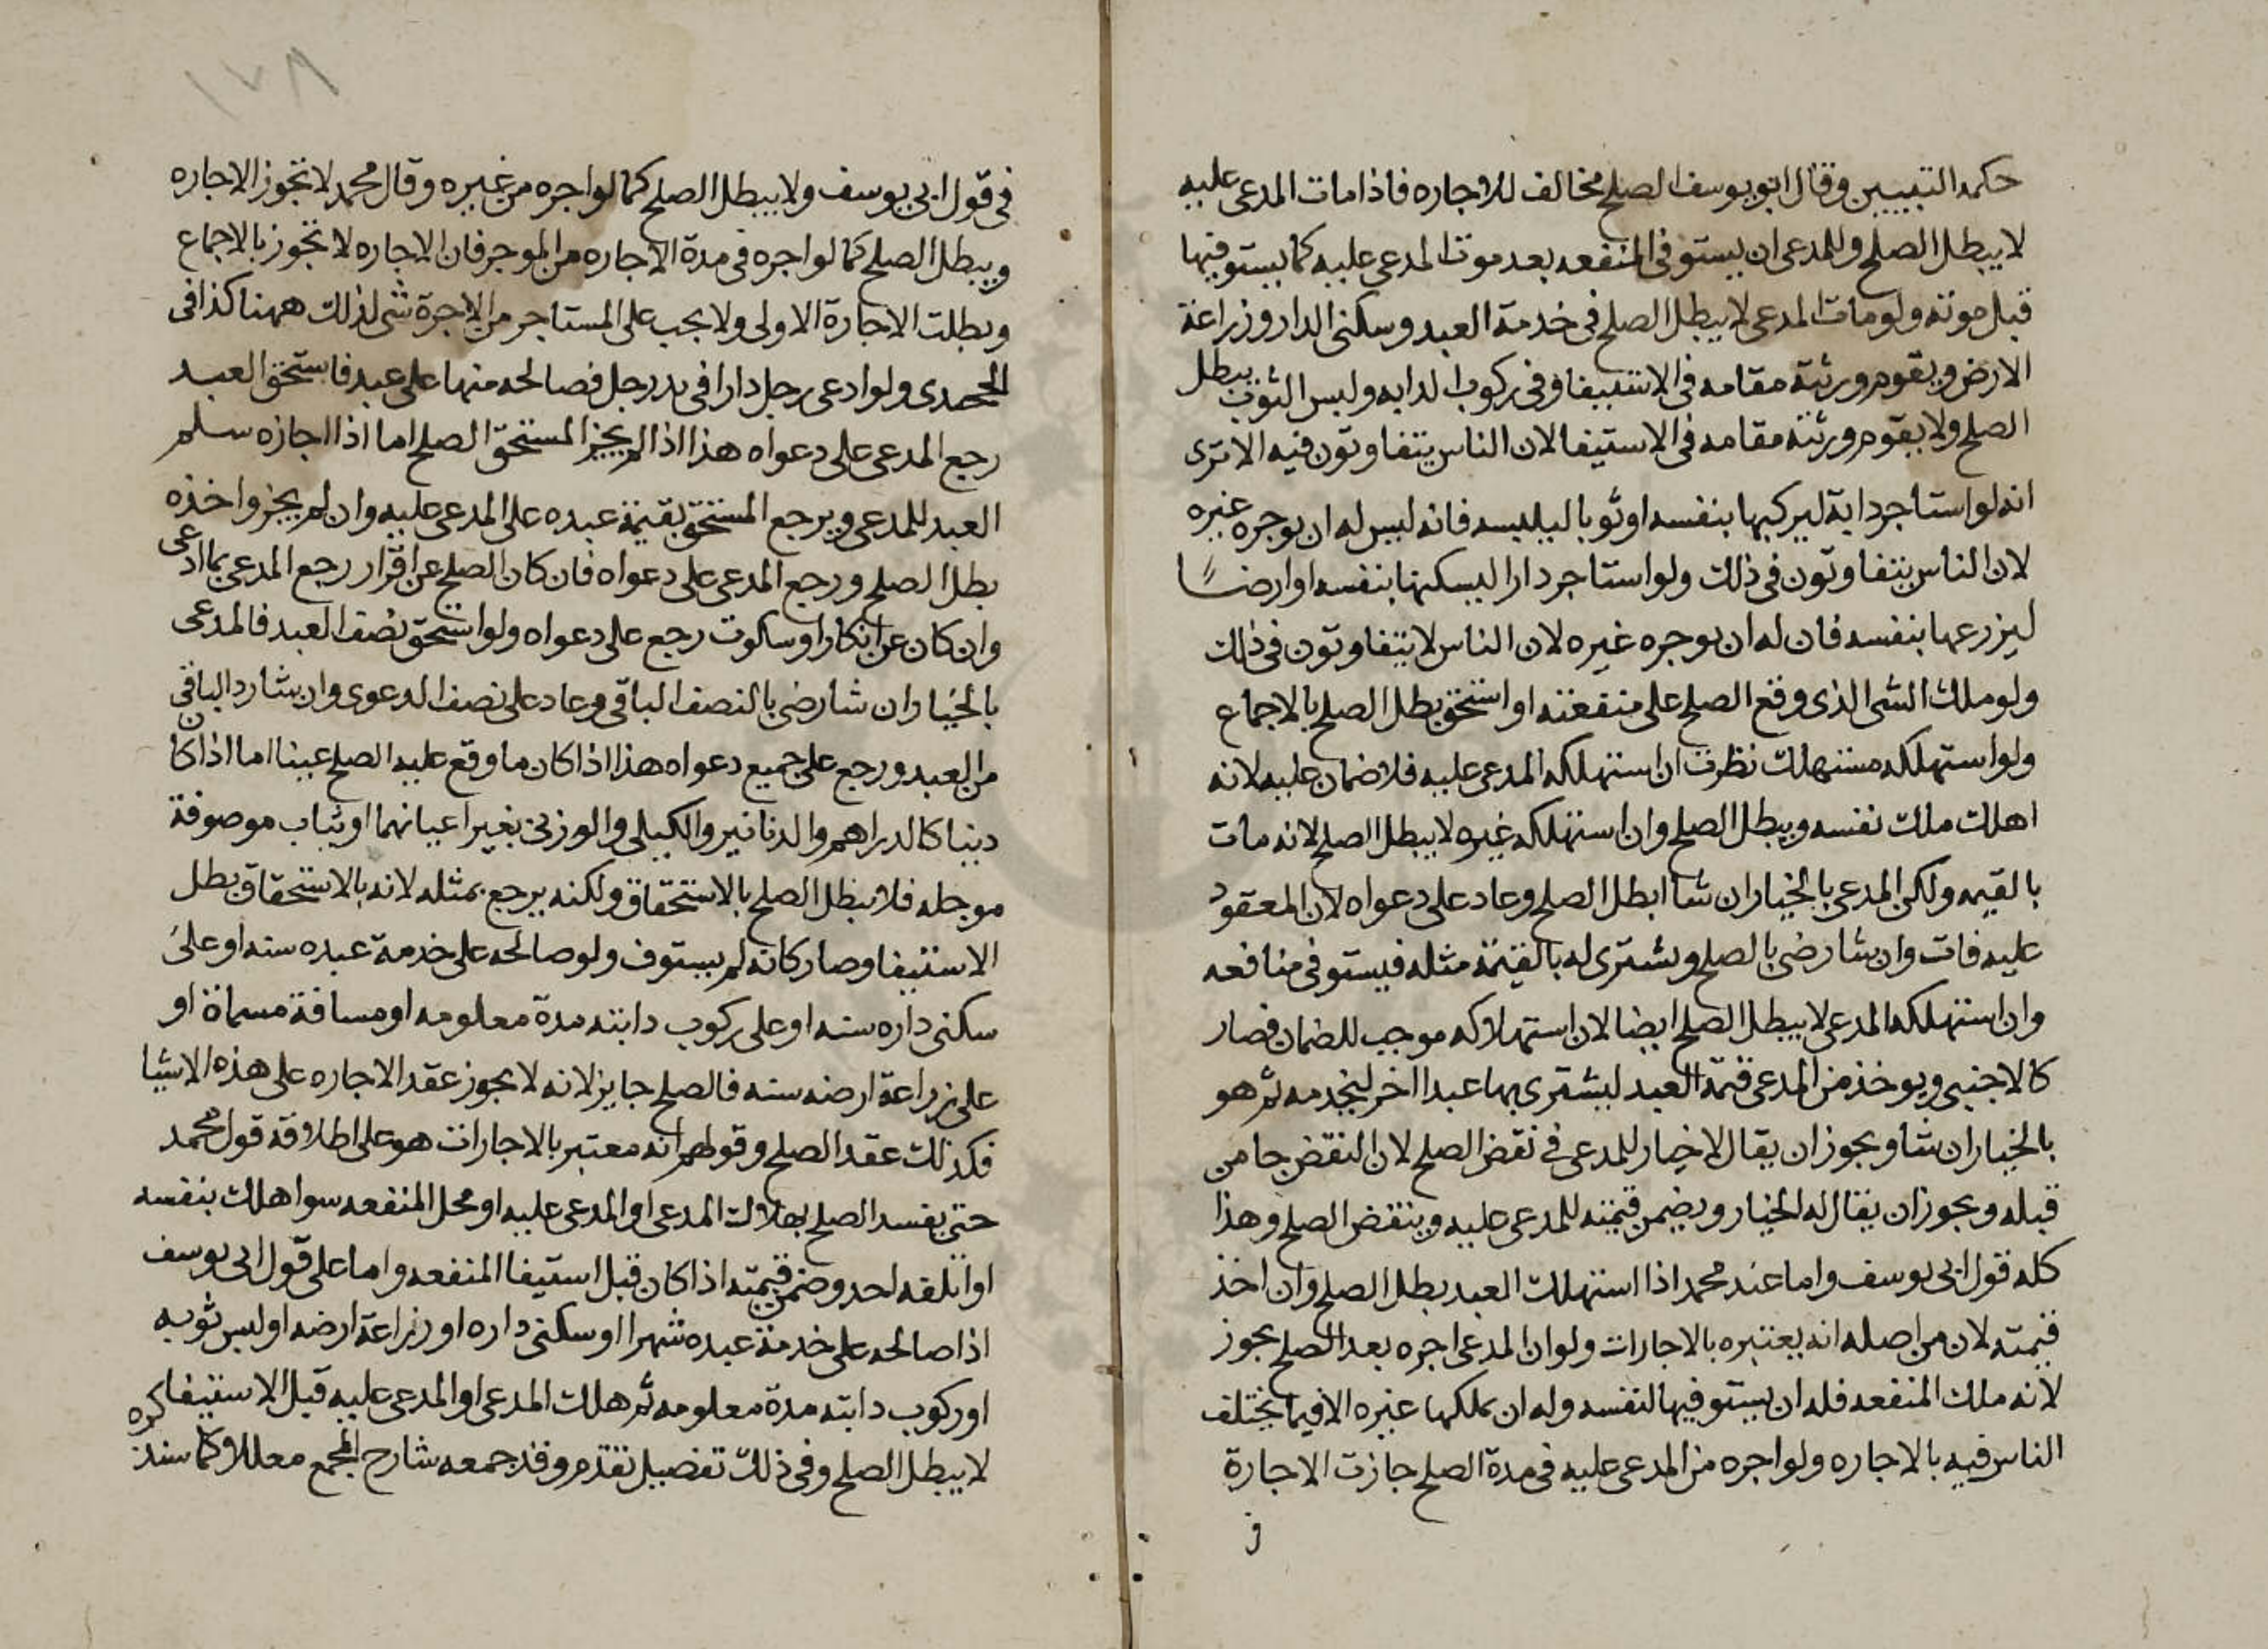 حكمه التبيين وقال ابو يوسف الصلح مخالف للاجاره فاذا مات المدعى عليه
لا يبطل الصلح وللمدعى ان يستوفى المنفعه بعد موت المدعى عليه كما يستوفيها
قبل موته ولو مات المدعى لا يبطل الصلح فى خدمة العبد وسكنى الدار وزراعة
الارض ويقوم ورثته مقامه فى الاستيفا وفى ركوب الدابه ولبس الثوب يبطل
الصلح ولا يقوم ورثته مقامه فى الاستيفا لان الناس يتفاوتون فيه الا ترى
انه لو استاجر دابة ليركبها بنفسه او ثوبا ليلبسه فانه ليس له ان يوجره غيره
لان الناس يتفاوتون فى ذلك ولو استاجر دارا ليسكنها بنفسه او ارضًا
ليزرعها بنفسه فان له ان يوجره غيره لان الناس لا يتفاوتون فى ذلك
ولو ملك الشى الذى وقع الصلح على منفعته او استحق بطل الصلح بالاجماع
ولو استهلكه مستهلك نظرت ان استهلكه المدعى عليه فلا ضمان عليه لانه
اهلك ملك نفسه ويبطل الصلح وان استهلكه غيره لا يبطل الصلح لانه مات
بالقيمه ولكن المدعى بالخيار ان شا ابطل الصلح وعاد على دعواه لان المعقود
عليه فات وان شا رضى بالصلح ويشترى له بالقيمة مثله فيستوفى منافعه
وان استهلكه المدعى لا يبطل الصلح ايضا لان استهلاكه موجب للضمان فصار
كالاجنبى ويوخذ من المدعى قيمة العبد ليشترى بها عبدا اخر ليخدمه ثم هو
بالخيار ان شا ويجوز ان يقال لا خيار للمدعى فى نقض الصلح لان النقض جا من
قبله ويجوز ان يقال له الخيار ويضمن قيمته للمدعى عليه وينقض الصلح وهذا
كله قول ابى يوسف واما عند محمد اذا استهلك العبد يبطل الصلح وان اخذ
قيمته لان من اصله انه يعتبره بالاجارات ولو ان المدعى اجره بعد الصلح يجوز
لانه ملك المنفعه فله ان يستوفيها لنفسه وله ان يملكها غيره الا فيما يختلف
الناس فيه بالاجاره ولو اجره من المدعى عليه فى مدة الصلح جازت الاجارة
فى
١٧٨
فى قول ابى يوسف ولا يبطل الصلح كما لو اجره من غيره وقال محمد لا تجوز الاجاره
ويبطل الصلح كما لو اجره فى مدة الاجاره من الموجر فان الاجاره لا تجوز بالاجماع
وبطلت الاجارة الاولى ولا يجب على المستاجر من الاجرة شى لذلك ههنا كذا فى
المحمدى ولو ادعى رجل دارا فى يد رجل فصالحه منها على عبد فاستحق العبد
رجع المدعى على دعواه هذا اذا لم يجز المستحق الصلح اما اذا اجازه سلم
العبد للمدعى ويرجع المستحق بقيمة عبده على المدعى عليه وان لم يجز واخذه
بطل الصلح ورجع المدعى على دعواه فان كان الصلح عن اقرار رجع المدعى بما ادعى
وان كان عن انكار او سكوت رجع على دعواه ولو استحق نصف العبد فالمدعى
بالخيار ان شا رضى بالنصف الباقى وعاد على نصف الدعوى وان شا رد الباقى
من العبد ورجع على جميع دعواه هذا اذا كان ما وقع عليه الصلح عينا اما اذا كان
دينا كالدراهم والدنانير والكيلى والوزنى بغير اعيانهما او ثياب موصوفة
موجله فلا يبطل الصلح بالاستحقاق ولكنه يرجع بمثله لانه بالاستحقاق بطل
الاستيفا وصار كانه لم يستوف ولو صالحه على خدمة عبده سنه او على
سكنى داره سنه او على ركوب دابته مدة معلومه او مسافة مسماة او
على زراعة ارضه سنه فالصلح جايز لانه لا يجوز عقد الاجاره على هذه الاشيا
فكذلك عقد الصلح وقولهم انه معتبر بالاجارات هو على اطلاقه قول محمد
حتى يفسد الصلح بهلاك المدعى او المدعى عليه او محل المنفعه سوا هلك بنفسه
او اتلفه احد وضمن قيمته اذا كان قبل استيفا المنفعه واما على قول ابى يوسف
اذا صالحه على خدمة عبده شهرا او سكنى داره او زراعة ارضه او لبس ثوبه
او ركوب دابته مدة معلومه ثم هلك المدعى او المدعى عليه قبل الاستيفا
لا يبطل الصلح وفى ذلك تفصيل تقدم وقد جمعه شارح المجمع معللا كما سنذكره